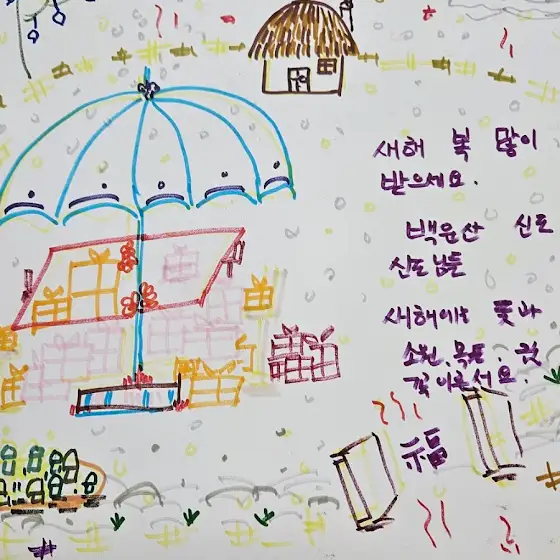 새해 복 많이
받으세요.
백운산 신도
신도님들
새해에는 뜻과
소원.목표.
꼭 이루세요.
福